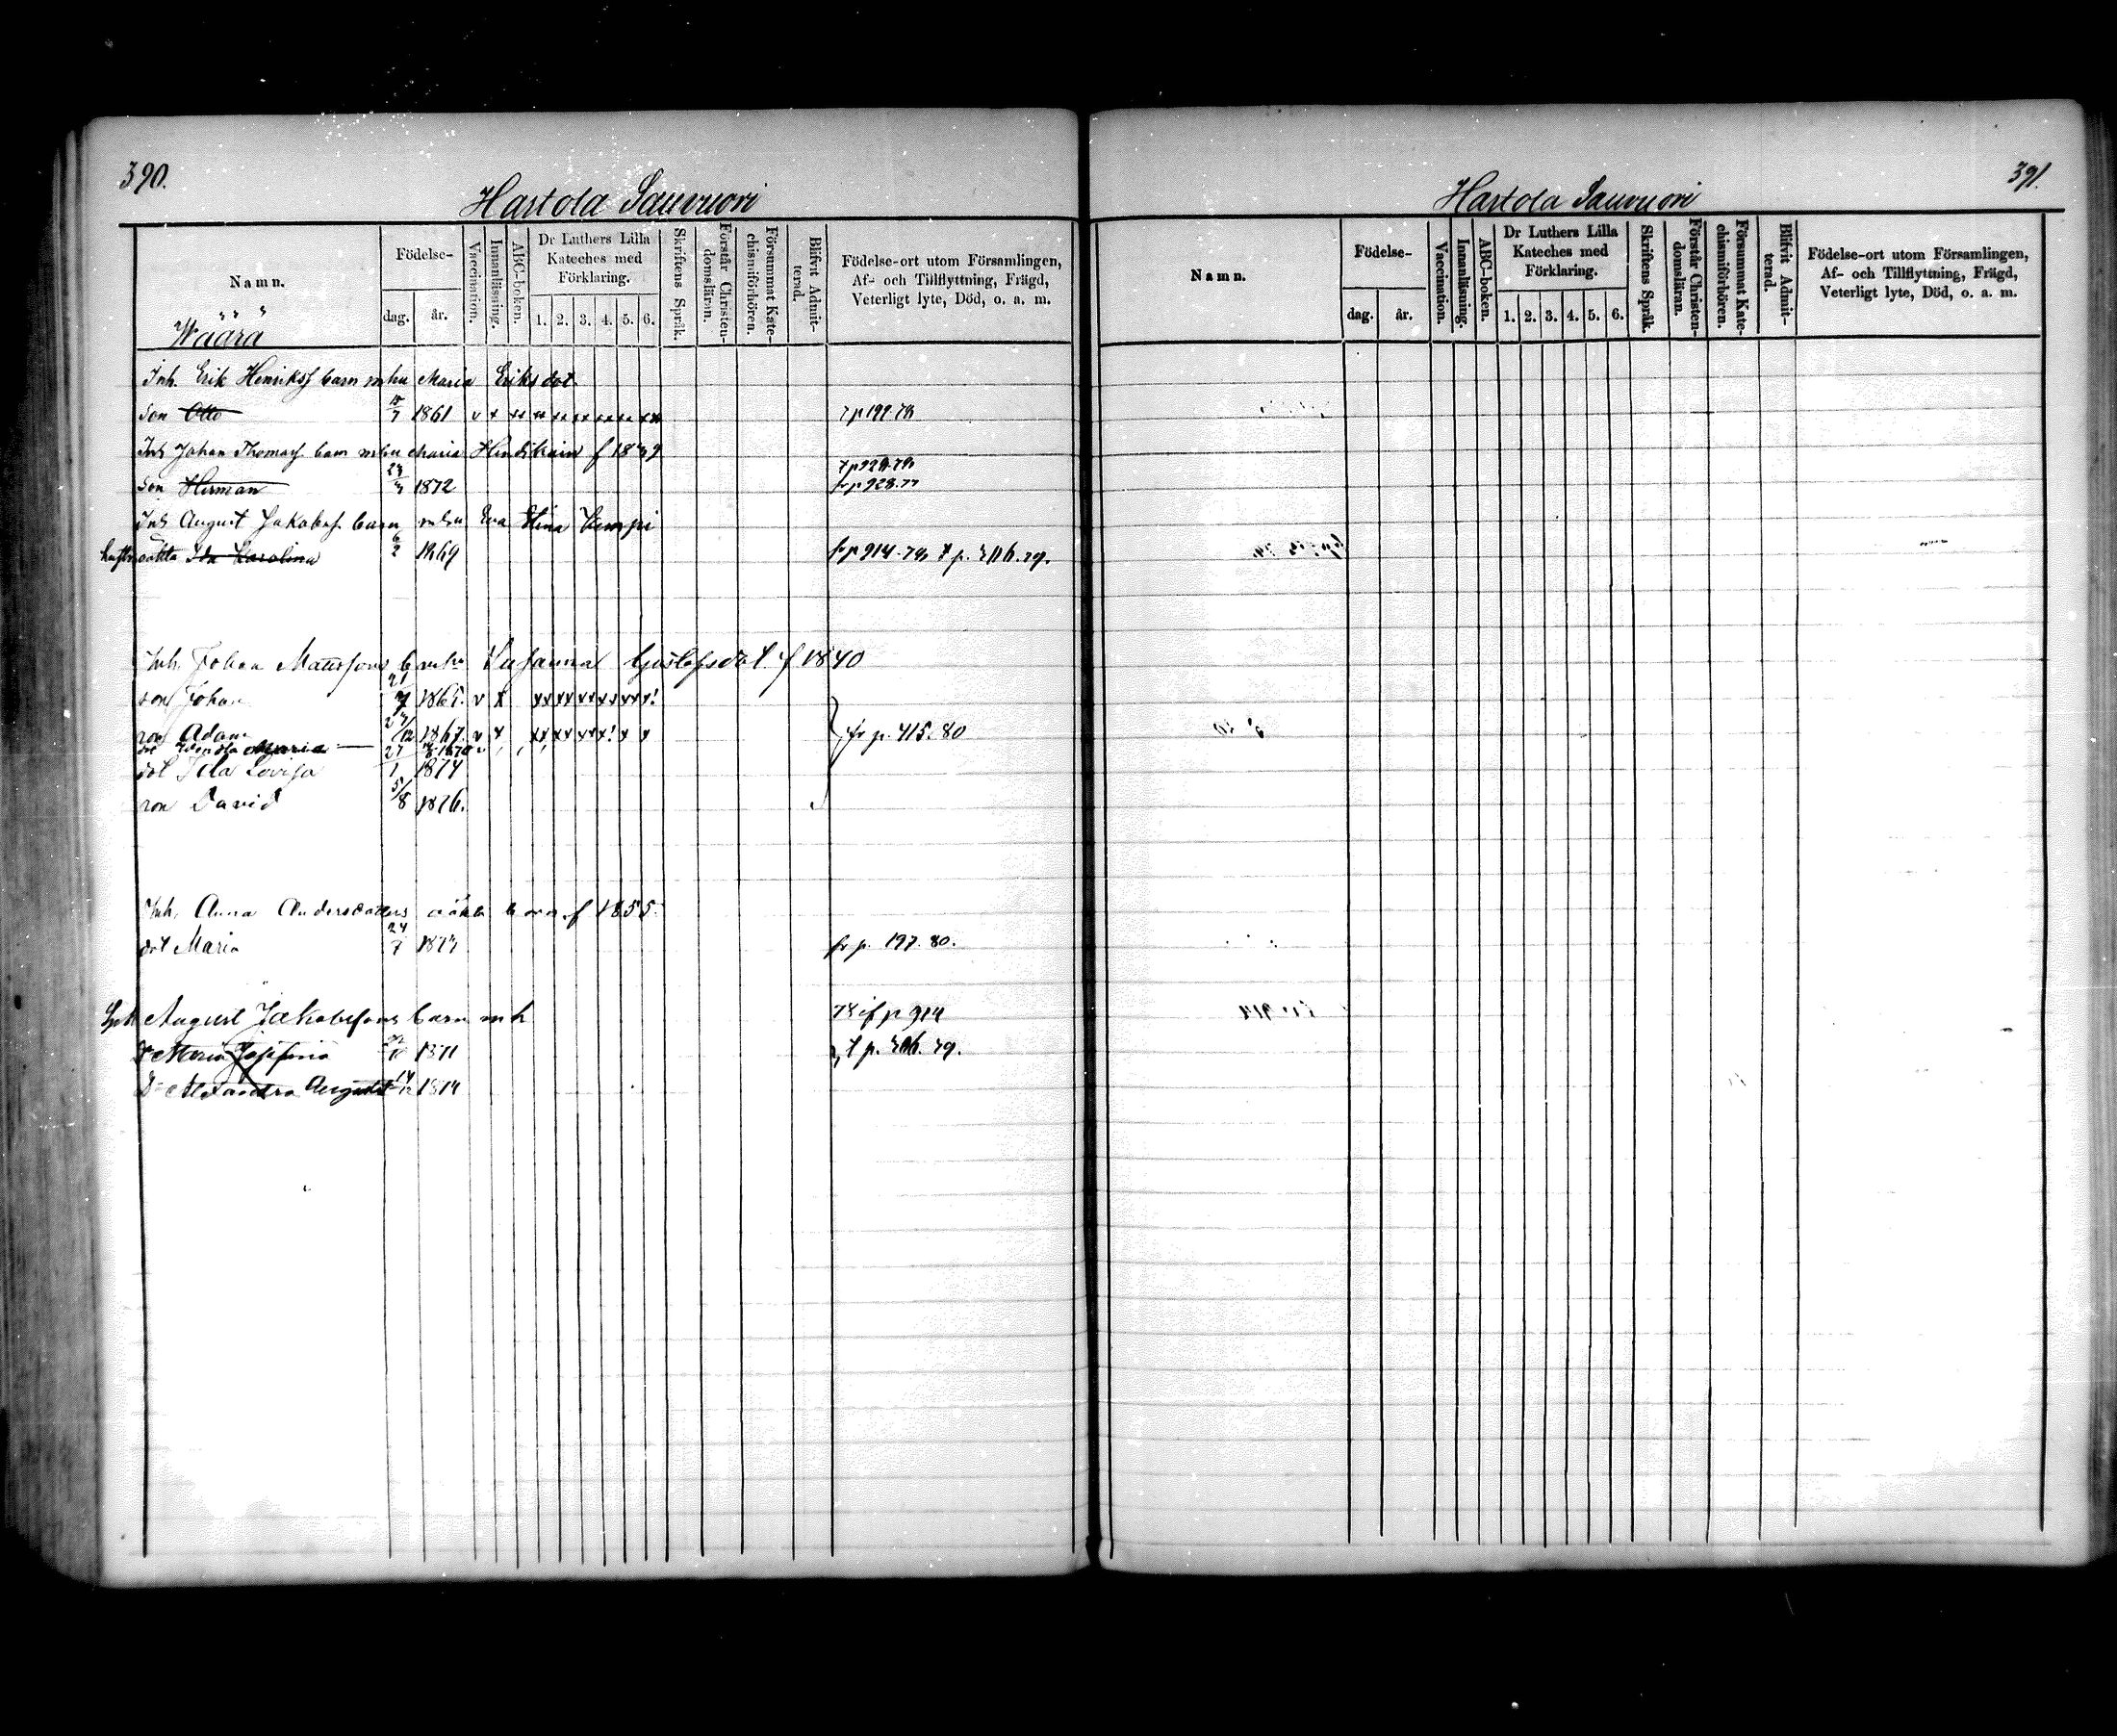 390.
Hartola Sauvuori
Namn.
Födelse-
dag.
år.
Vaccination.
Innanläsning.
ABC-boken.
Dr Luthers Lilla Kateches med Förklaring.
1. 2. 3. 4. 5. 6.
Skriftens Språk.
Förstår Christendomsläran.
Försummat Katechismiförhören.
Blifvit Admitterad.
Födelse-ort utom Församlingen, Af- och Tillflyttning, Frägd, Veterligt lyte, Död, o. a. m.
Wäärä
Inh. Erik Henrikss barn mhu Maria Eriksdot
Son Otto 7 1861 v x
Inh Johan Thomass barn mhu Maria
Son Herman 1872 fr p 928.77
Inh August Jakobss barn mhu Eva Stina Kemppi
oäkta Ida Karolina 6/2 1869 fr p 914.79 t p. 206.79.
Inh. Johan Mattssons b mhu Susanna Gustafsdot f 1840
son Johan 21/7 1865. v x
son Adam 27/12 1867. v x fr p. 415. 80
Maria 27 1870
dot Ida Lovisa 1 1874
son David 5/8 1876.
Inh. Anna Andersdotters oäkta barn f 1855
dot Maria 24/7 1877 fr p. 197. 80.
August Jakobssons barn mh 78 if p 914
Dr Maria Josefina 1871 t p. 206. 79.
Dr Alexandra August 14/12 1874
391.
Hartola Sauvuori
Namn.
Födelse-
dag.
år.
Vaccination.
Innanläsning.
ABC-boken.
Dr Luthers Lilla Kateches med Förklaring.
1. 2. 3. 4. 5. 6.
Skriftens Språk.
Förstår Christendomsläran.
Försummat Katechismiförhören.
Blifvit Admitterad.
Födelse-ort utom Församlingen, Af- och Tillflyttning, Frägd, Veterligt lyte, Död, o. a. m.